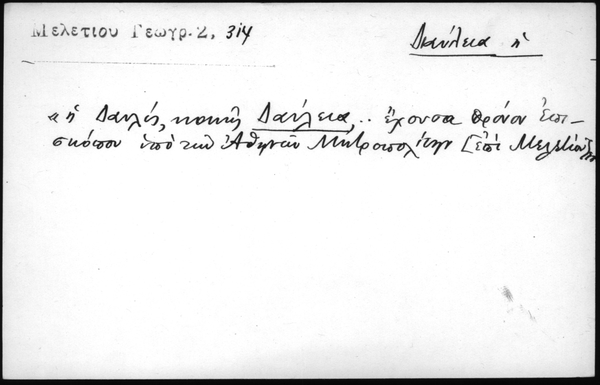 Μελετίου Γεωγρ. 2, 314
Δαύλεια ἡ
« ἡ Δαυλίς, κοινῶς Δαύλεια, .. ἔχουσα θρόνον Ἐπι-
σκόπου ὑπὸ τὸν Ἀθηνῶν Μητροπολίτην [ἐπὶ Μελετίου]